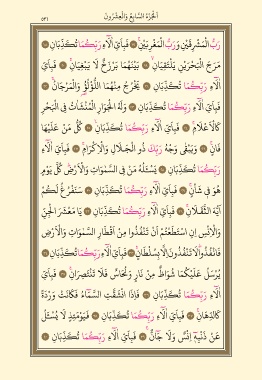 الجزء السابع والعشرون
٥٣١
رَبُّ الْمَشْرِقَيْنِ وَرَبُّ الْمَغْرِبَيْنِ فَبِأَيِّ آلَاءِ رَبِّكُمَا تُكَذِّبَانِ
مَرَجَ الْبَحْرَيْنِ يَلْتَقِيَانِ بَيْنَهُمَا بَرْزَخٌ لَا يَبْغِيَانِ فَبِأَيِّ
آلَاءِ رَبِّكُمَا تُكَذِّبَانِ يَخْرُجُ مِنْهُمَا اللُّؤْلُؤُ وَالْمَرْجَانُ
فَبِأَيِّ آلَاءِ رَبِّكُمَا تُكَذِّبَانِ وَلَهُ الْجَوَارِ الْمُنْشَآتُ فِي الْبَحْرِ
كَالْأَعْلَامِ فَبِأَيِّ آلَاءِ رَبِّكُمَا تُكَذِّبَانِ كُلُّ مَنْ عَلَيْهَا
فَانٍ وَيَبْقَى وَجْهُ رَبِّكَ ذُو الْجَلَالِ وَالْإِكْرَامِ فَبِأَيِّ آلَاءِ
رَبِّكُمَا تُكَذِّبَانِ يَسْئَلُهُ مَنْ فِي السَّمٰوَاتِ وَالْأَرْضِ كُلَّ يَوْمٍ
هُوَ فِي شَأْنٍ فَبِأَيِّ آلَاءِ رَبِّكُمَا تُكَذِّبَانِ سَنَفْرُغُ لَكُمْ
أَيُّهَ الثَّقَلَانِ فَبِأَيِّ آلَاءِ رَبِّكُمَا تُكَذِّبَانِ يَا مَعْشَرَ الْجِنِّ
وَالْإِنْسِ إِنِ اسْتَطَعْتُمْ أَنْ تَنْفُذُوا مِنْ أَقْطَارِ السَّمٰوَاتِ وَالْأَرْضِ
فَانْفُذُوا لَا تَنْفُذُونَ إِلَّا بِسُلْطَانٍ فَبِأَيِّ آلَاءِ رَبِّكُمَا تُكَذِّبَانِ
يُرْسَلُ عَلَيْكُمَا شُوَاظٌ مِنْ نَارٍ وَنُحَاسٌ فَلَا تَنْتَصِرَانِ فَبِأَيِّ
آلَاءِ رَبِّكُمَا تُكَذِّبَانِ فَإِذَا انْشَقَّتِ السَّمَاءُ فَكَانَتْ وَرْدَةً
كَالدِّهَانِ فَبِأَيِّ آلَاءِ رَبِّكُمَا تُكَذِّبَانِ فَيَوْمَئِذٍ لَا يُسْئَلُ
عَنْ ذَنْبِهِ إِنْسٌ وَلَا جَانٌّ فَبِأَيِّ آلَاءِ رَبِّكُمَا تُكَذِّبَانِ